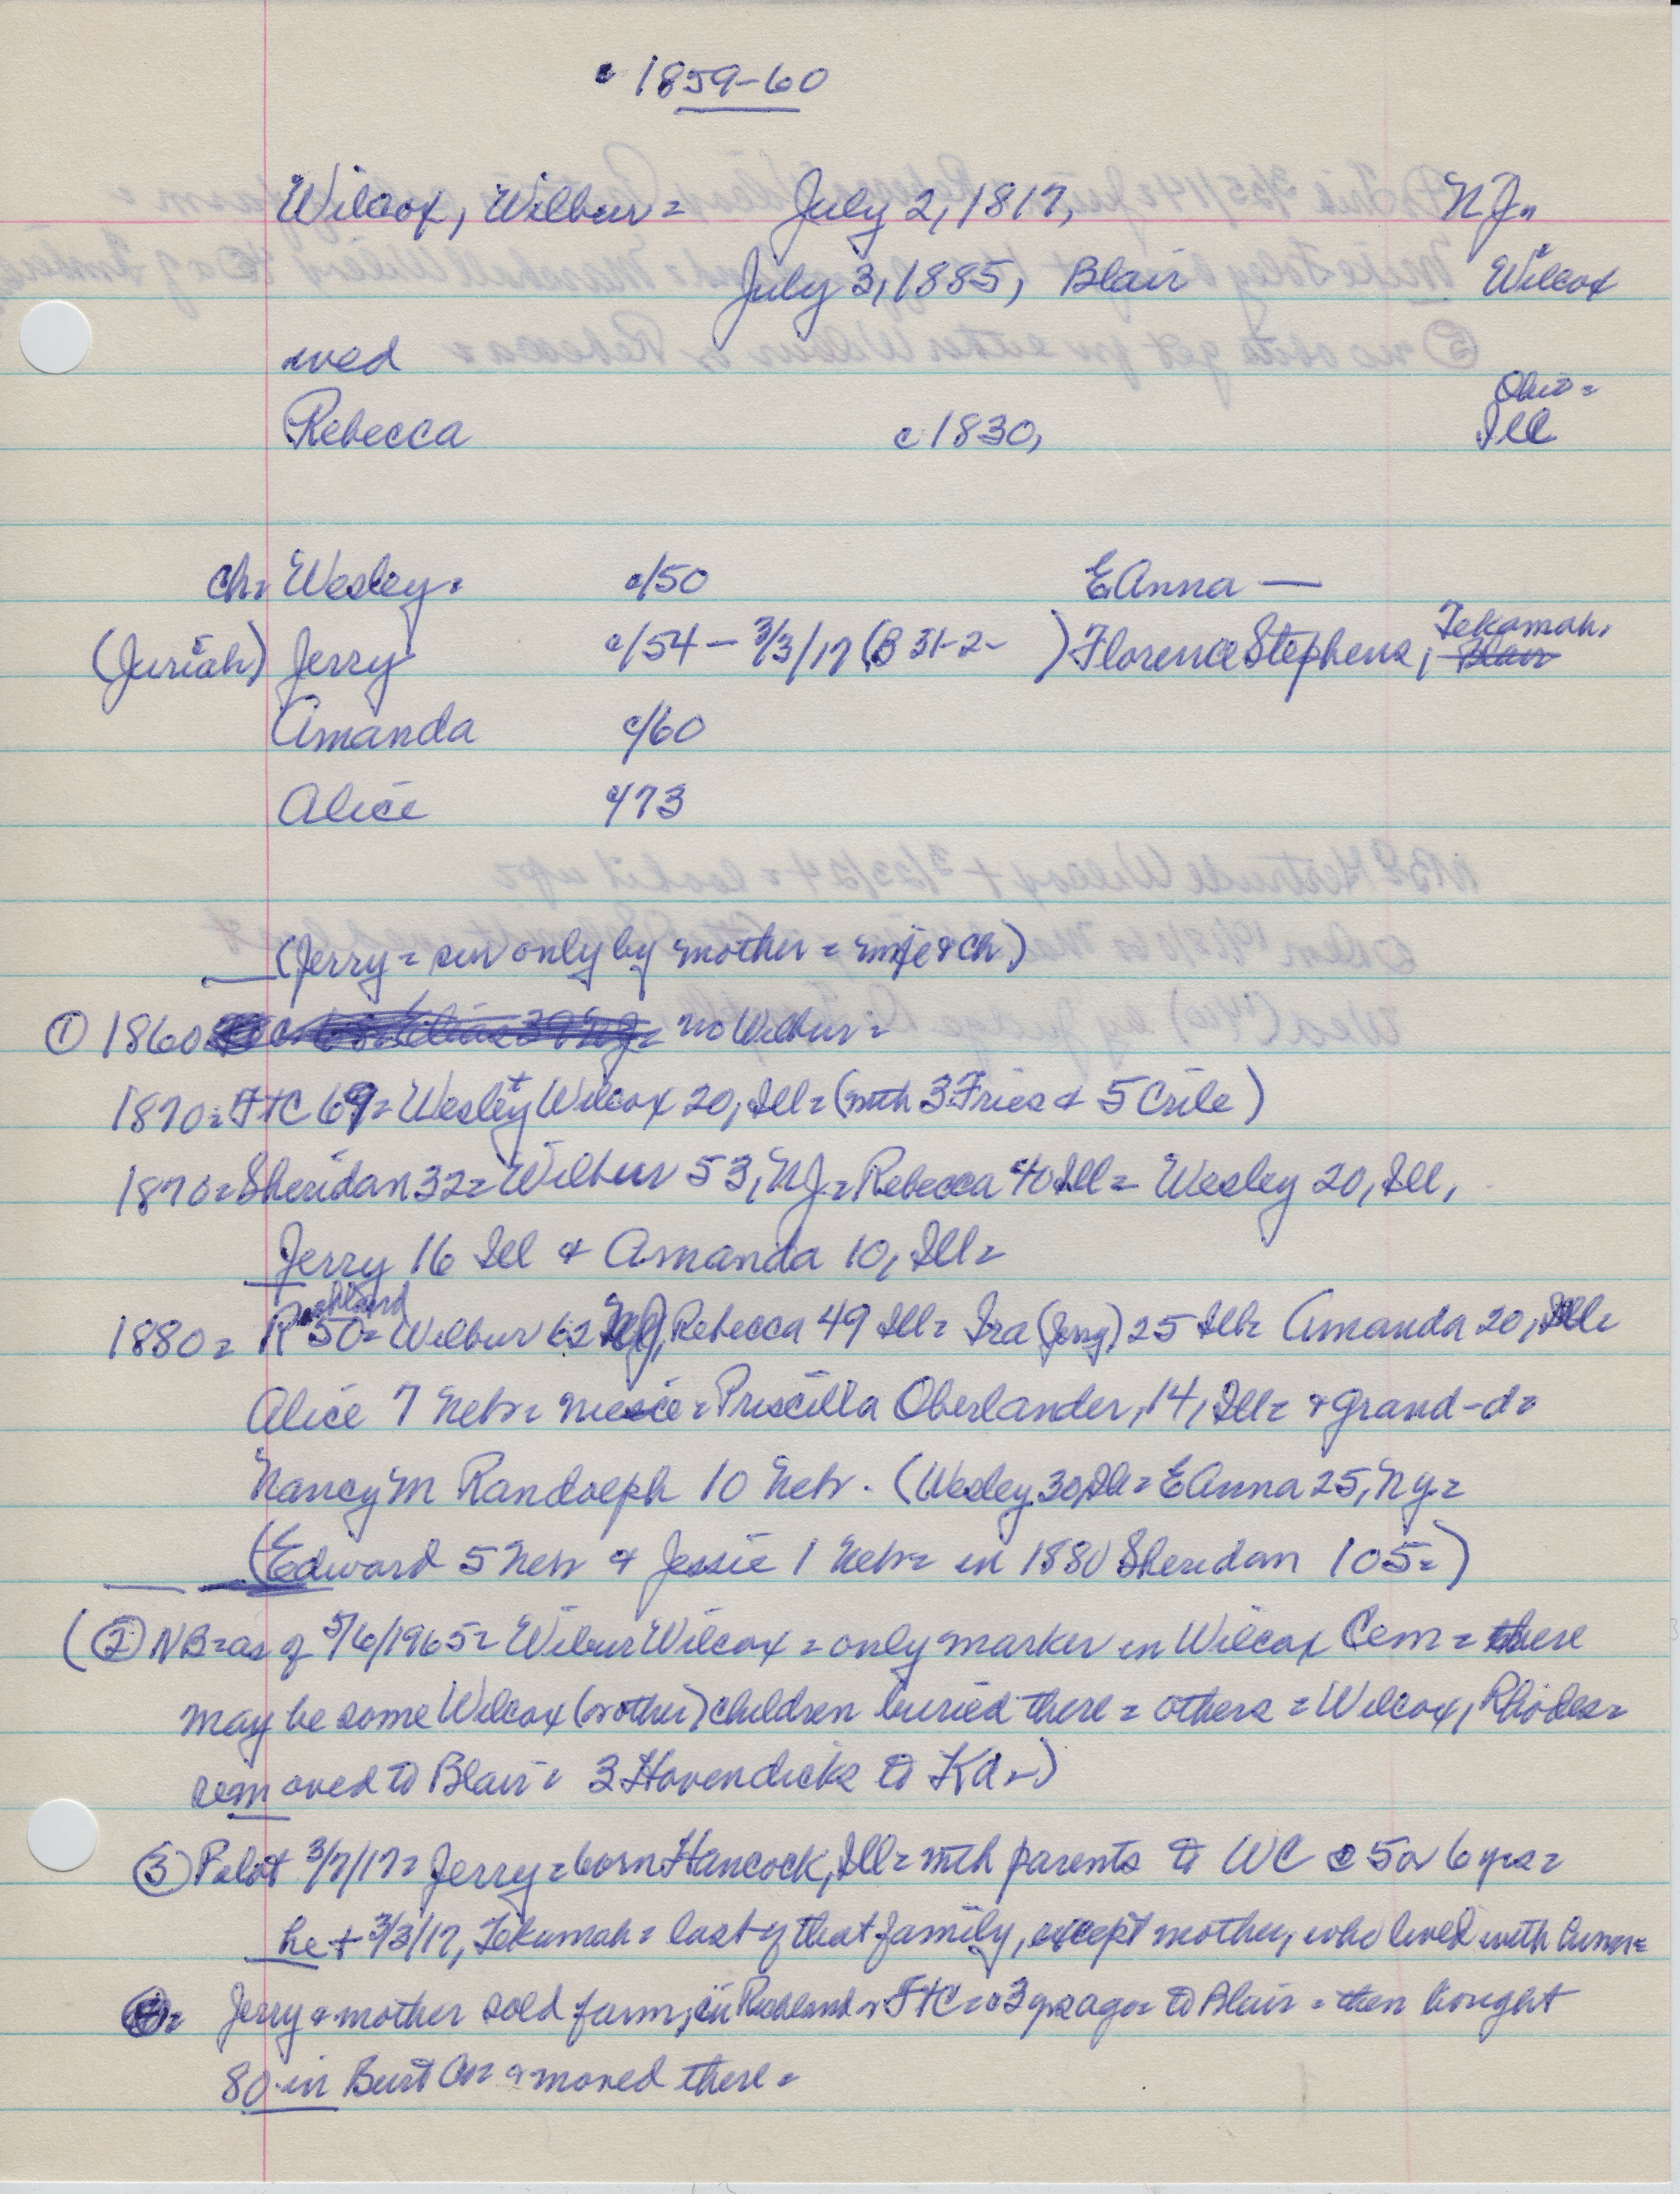 c 1859-60
Wilcox, Wilbur = July 2, 1817, N.J.
July 3, 1885, Blair + Wilcox
wed
Ohio =
Rebecca c 1830, Ill
ch = Wesley = c/50 E Anna —
Tekamah,
(Juriah) Jerry c/54 - 3/3/17 (B 31-2- ) Florence Stephens, Blair
Amanda c/60
Alice c/73
(Jerry = sur only by mother = wife & ch)
① 1860 no Wilbur =
1870 = FTC 69 = Wesley Wilcox 20, Ill = (with 3 Fries & 5 Crile)
1870 = Sheridan 32 = Wilbur 53, NJ = Rebecca 40 Ill = Wesley 20, Ill,
Jerry 16 Ill & Amanda 10, Ill =
1880 = Richland 50 = Wilbur 62 NJ, Rebecca 49 Ill = Ira (Jerry) 25 Ill = Amanda 20, Ill =
Alice 7 Nebr = niece = Priscilla Oberlander, 14, Ill = & grand-d =
Nancy M Randolph 10 Nebr. (Wesley 30, Ill = E Anna 25, NY =
(Edward 5 Nebr & Jessie 1 Nebr = in 1880 Sheridan 105 =)
(② NB = as of 5/6/1965 = Wilbur Wilcox = only marker in Wilcox Cem = there
may be some Wilcox (or other) children buried there = others = Wilcox, Rhodes =
removed to Blair = 3 Havendicks to Kd -)
③ Pilot 3/7/17 = Jerry = born Hancock, Ill = with parents to WC @ 5 or 6 yrs =
he + 3/3/17, Tekamah = last of that family, except mother, who lived with him =
④ = Jerry & mother sold farm, in Richland or FTC = c 3 yrs ago = to Blair = then bought
80 in Burt Co = & moved there =